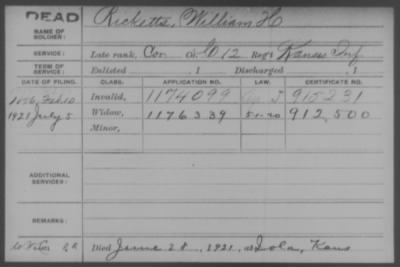 DEAD
NAME OF SOLDIER:
Ricketts, William H
SERVICE:
Late rank, Cor Co. G 12 Reg't Kansas Inf
TERM OF SERVICE:
Enlisted 1 Discharged 1
DATE OF FILING. CLASS. APPLICATION NO. LAW. CERTIFICATE NO.
Invalid, 1174099 915231
1921 July 5 Widow, 1176339 5-1-20 912,500
Minor,
ADDITIONAL SERVICES:
REMARKS:
Died June 28, 1921, at Iola, Kans